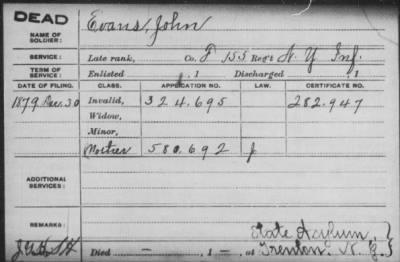 DEAD
NAME OF SOLDIER: Evans, John
SERVICE: Late rank, Co. F 155 Reg't N. Y. Inf.
TERM OF SERVICE: Enlisted , 1 Discharged , 1
DATE OF FILING. CLASS. APPLICATION NO. LAW. CERTIFICATE NO.
1879 Dec. 30 Invalid, 324.695 282.947
Widow,
Minor,
Mother 580.692 J
ADDITIONAL SERVICES:
REMARKS: State Asylum,
Died — , 1 — , at Trenton. N. J.